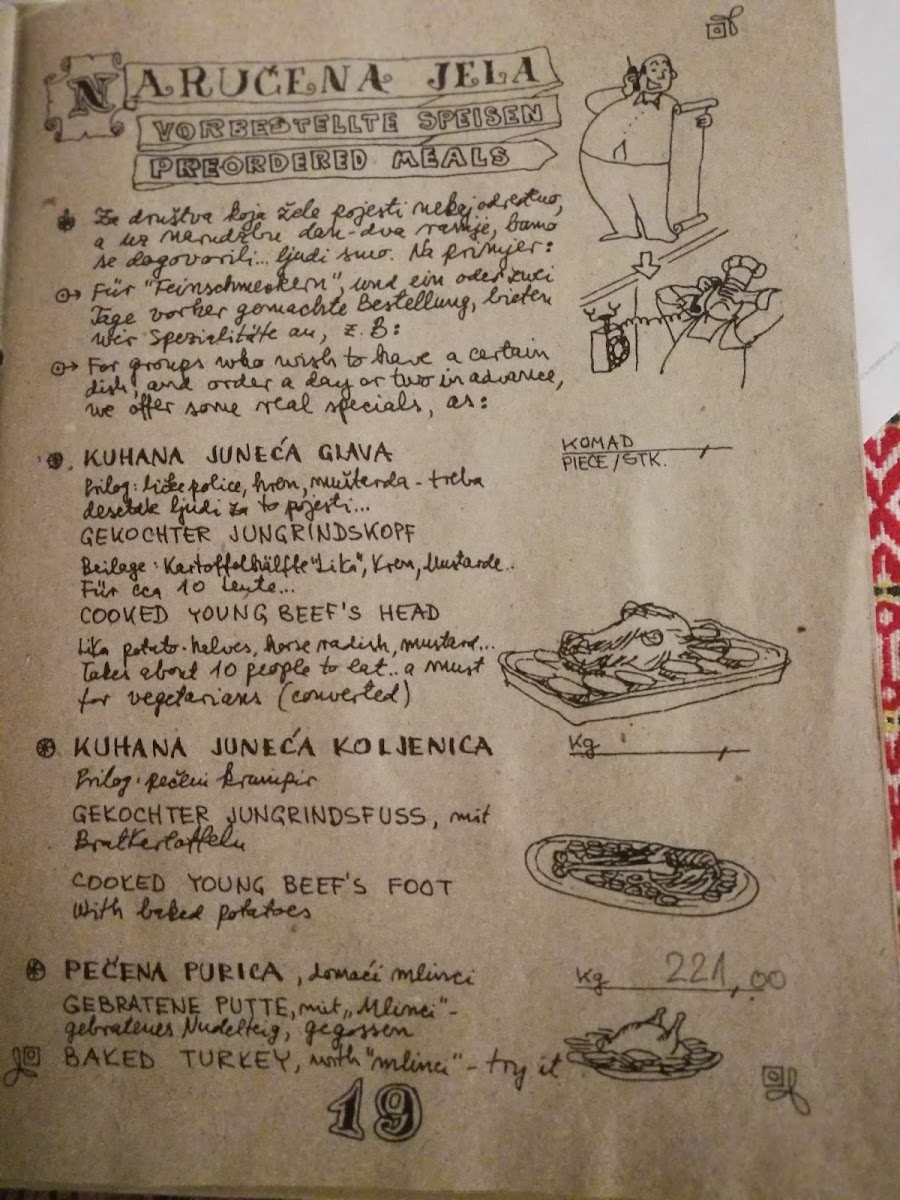 NARUČENA JELA
VORBESTELLTE SPEISEN
PREORDERED MEALS
Za društva koja žele pojesti nekaj određeno,
a uz narudžbu dan-dva ranije, bumo
se dogovorili... ljudi smo. Na primjer:
Für "Feinschmeckern", und ein oder zwei
Tage vorher gemachte Bestellung, bieten
wir Spezialitäte an, z.B:
For groups who wish to have a certain
dish, and order a day or two in advance,
we offer some real specials, as:
KUHANA JUNEĆA GLAVA
KOMAD
PIECE/STK. ,
Prilog: ličke police, hren, mušterda - treba
desetak ljudi za to pojesti...
GEKOCHTER JUNGRINDSKOPF
Beilage: Kartoffelhälfte "Lika", Kren, Mustarde..
Für cca 10 Leute...
COOKED YOUNG BEEF'S HEAD
Lika potato-halves, horse radish, mustard...
Takes about 10 people to eat.. a must
for vegetarians (converted)
KUHANA JUNEĆA KOLJENICA
Kg ,
Prilog: pečeni krampir
GEKOCHTER JUNGRINDSFUSS, mit
Bratkartoffeln
COOKED YOUNG BEEF'S FOOT
With baked potatoes
PEČENA PURICA, domaći mlinci
Kg 221,00
GEBRATENE PUTTE, mit „Mlinci"-
gebratenes Nudelteig, gegossen
BAKED TURKEY, with "mlinci" - try it
19